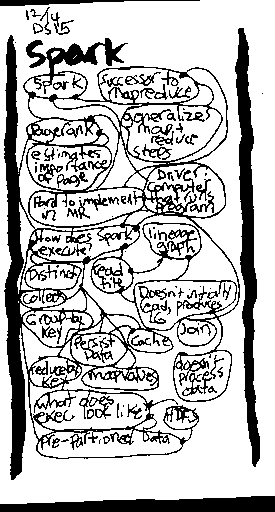 12/4
DS15
Spark
Spark
Successor to
mapreduce
Pagerank
generalizes
map &
reduce
steps
estimates
importance
of page
Driver:
computer
that runs
program
Hard to implement
in MR
How does Spark
execute?
lineage
graph
Distinct
read
file
Collect
Doesn't initially
read, produces
LG
Group by
key
Persist
Data
Cache
Join
reduce by
key
mapvalues
doesn't
process
data
what does
exec look like
HDFS
Pre-partioned Data